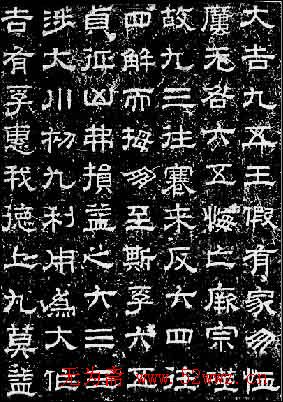 大吉九五王假有家勿
厲无咎六五悔亡厥宗
故九三往蹇來反六四往
四解而拇朋至斯孚六五
貞征凶弗損益之六三三
涉大川初九利用為大作
吉有孚惠我德上九莫益
无为斋 www.52wwz.cn